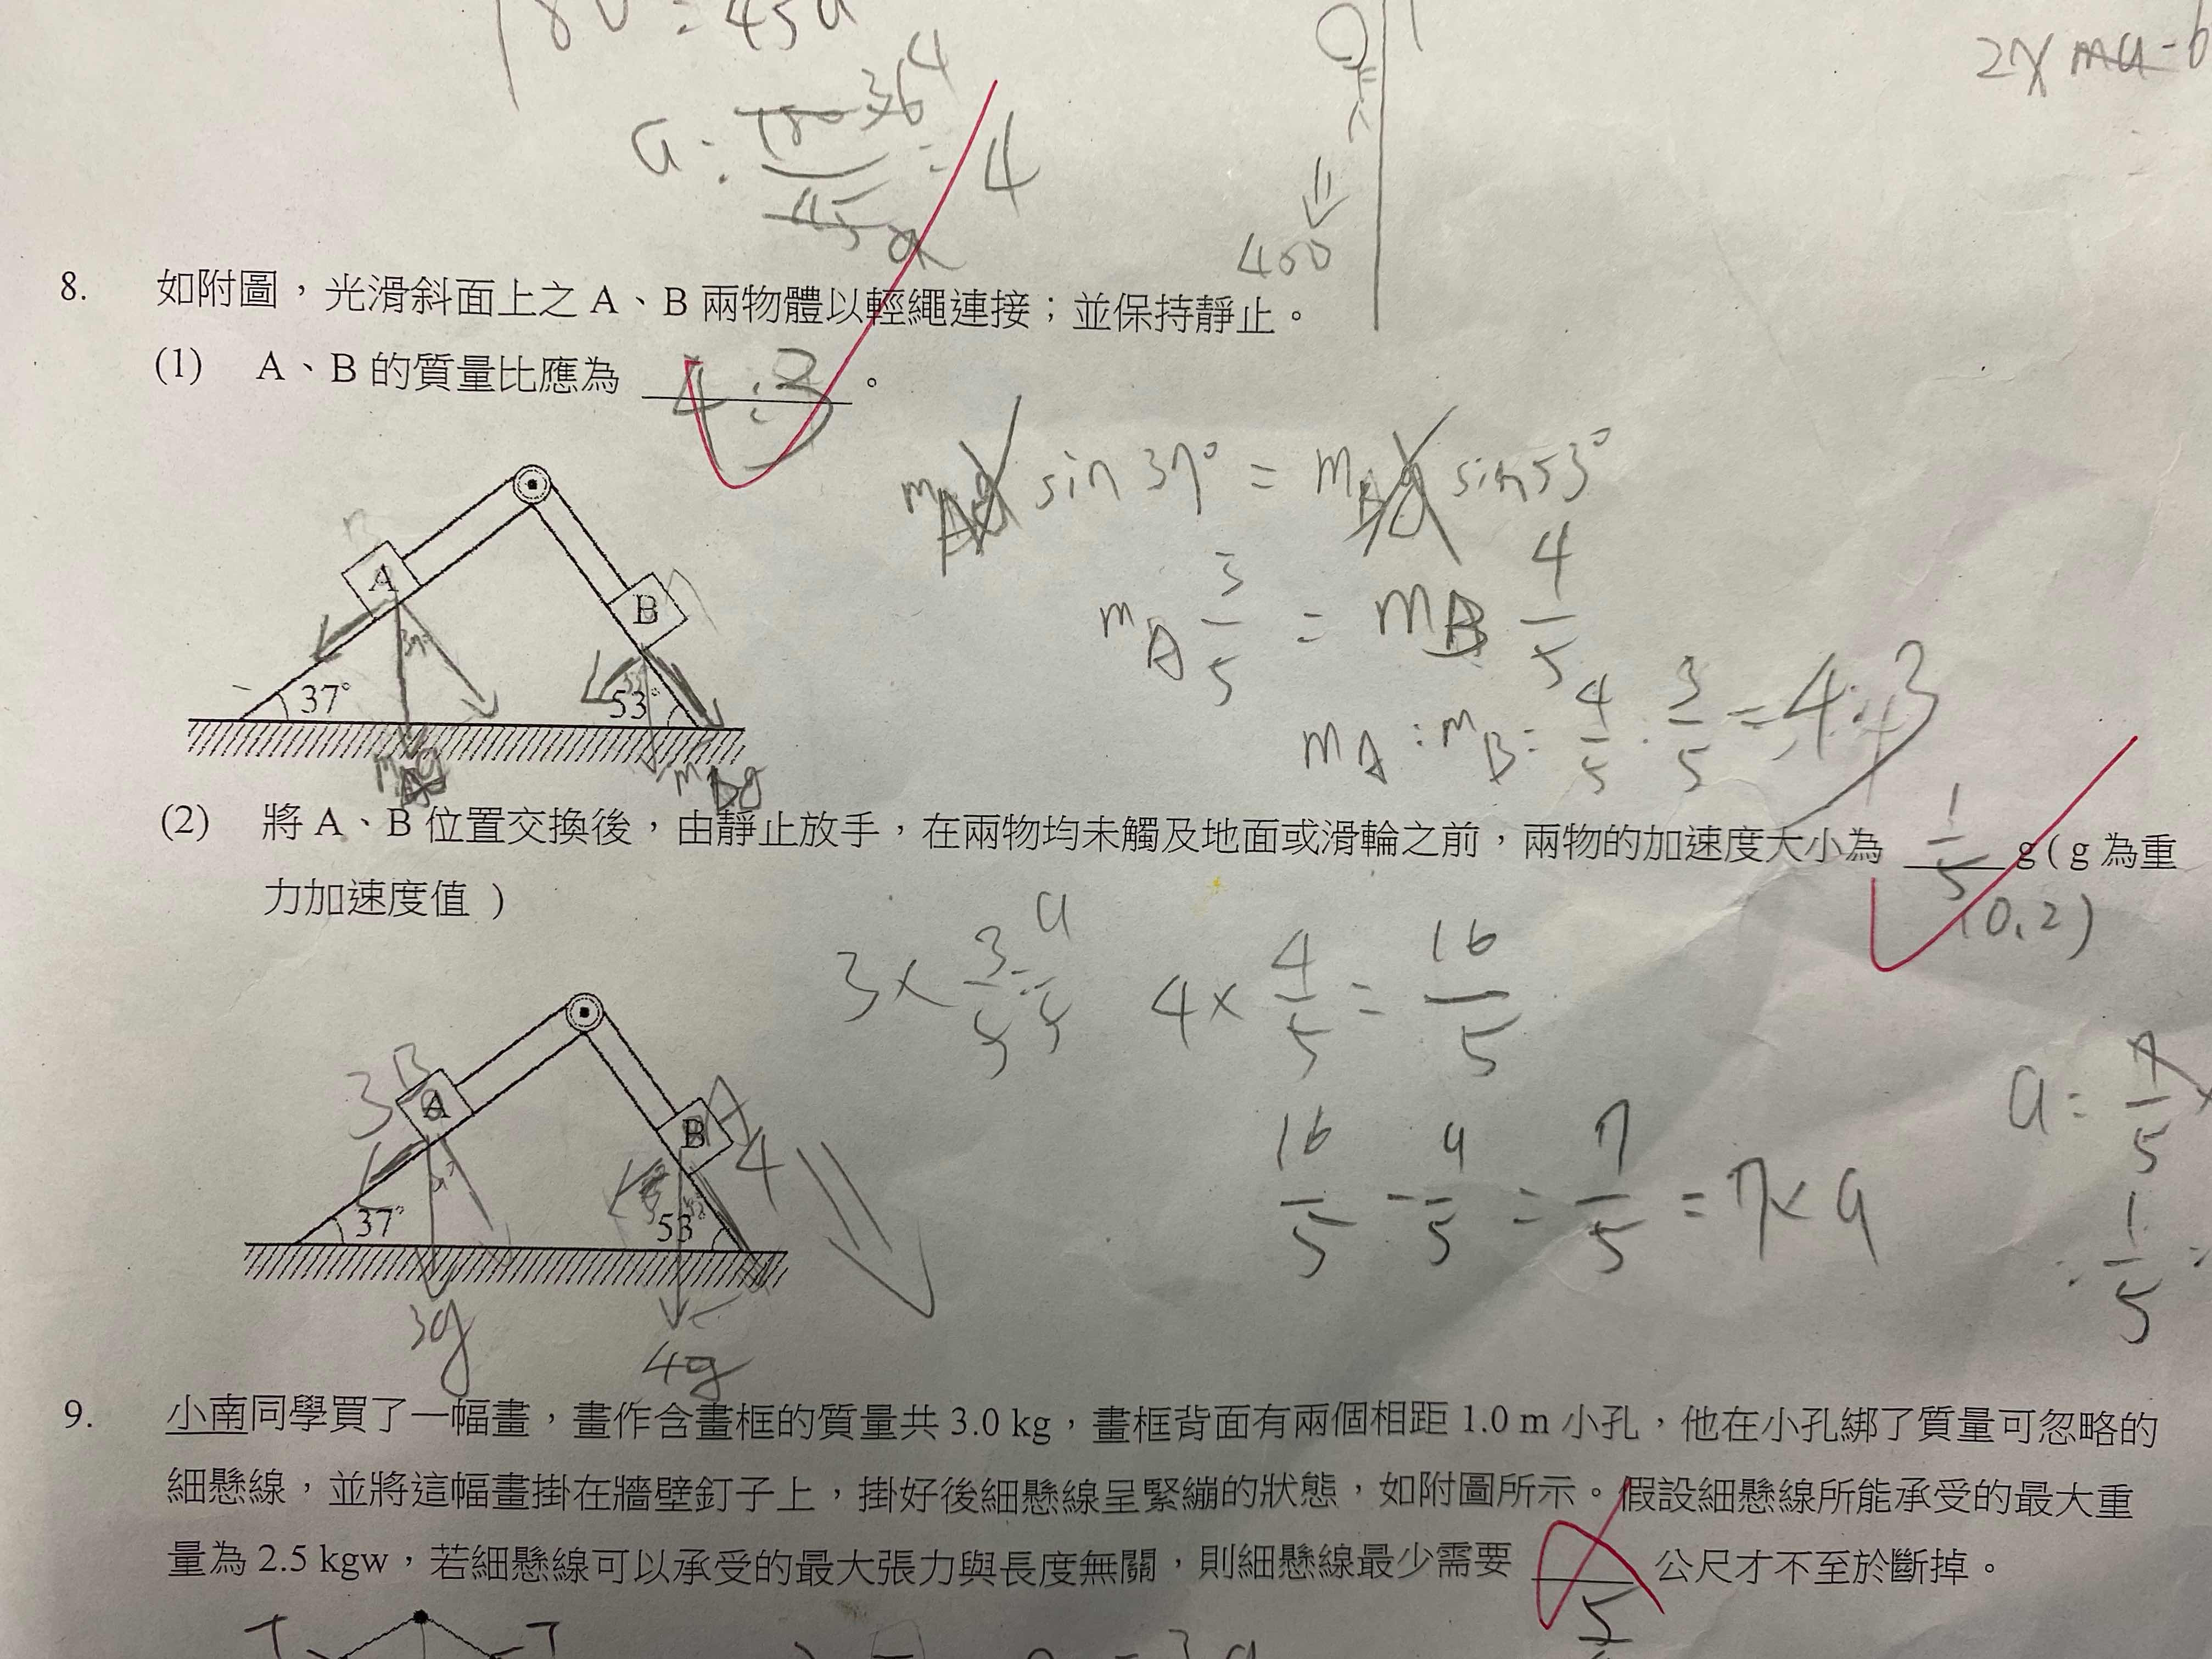 180 = 45a
a = 180 36 4 = 4
45
400
2x ma - 6
8. 如附圖，光滑斜面上之 A、B 兩物體以輕繩連接；並保持靜止。
(1) A、B 的質量比應為 4:3 。
mAg sin 37° = mBg sin 53°
mA 3/5 = mB 4/5
mA : mB = 4/5 : 3/5 = 4:3
A
B
37°
37°
53°
mAg
mBg
(2) 將 A、B 位置交換後，由靜止放手，在兩物均未觸及地面或滑輪之前，兩物的加速度大小為 1/5 g ( g 為重
力加速度值 )
(0.2)
3 × 3/5 = 9/5
4 × 4/5 = 16/5
16/5 - 9/5 = 7/5 = 7 × a
a = 7/5 ×
= 1/5 =
3 B
A
B
A
4
37°
53°
3g
4g
9. 小南同學買了一幅畫，畫作含畫框的質量共 3.0 kg，畫框背面有兩個相距 1.0 m 小孔，他在小孔綁了質量可忽略的
細懸線，並將這幅畫掛在牆壁釘子上，掛好後細懸線呈緊繃的狀態，如附圖所示。假設細懸線所能承受的最大重
量為 2.5 kgw，若細懸線可以承受的最大張力與長度無關，則細懸線最少需要 公尺才不至於斷掉。
5
T
T